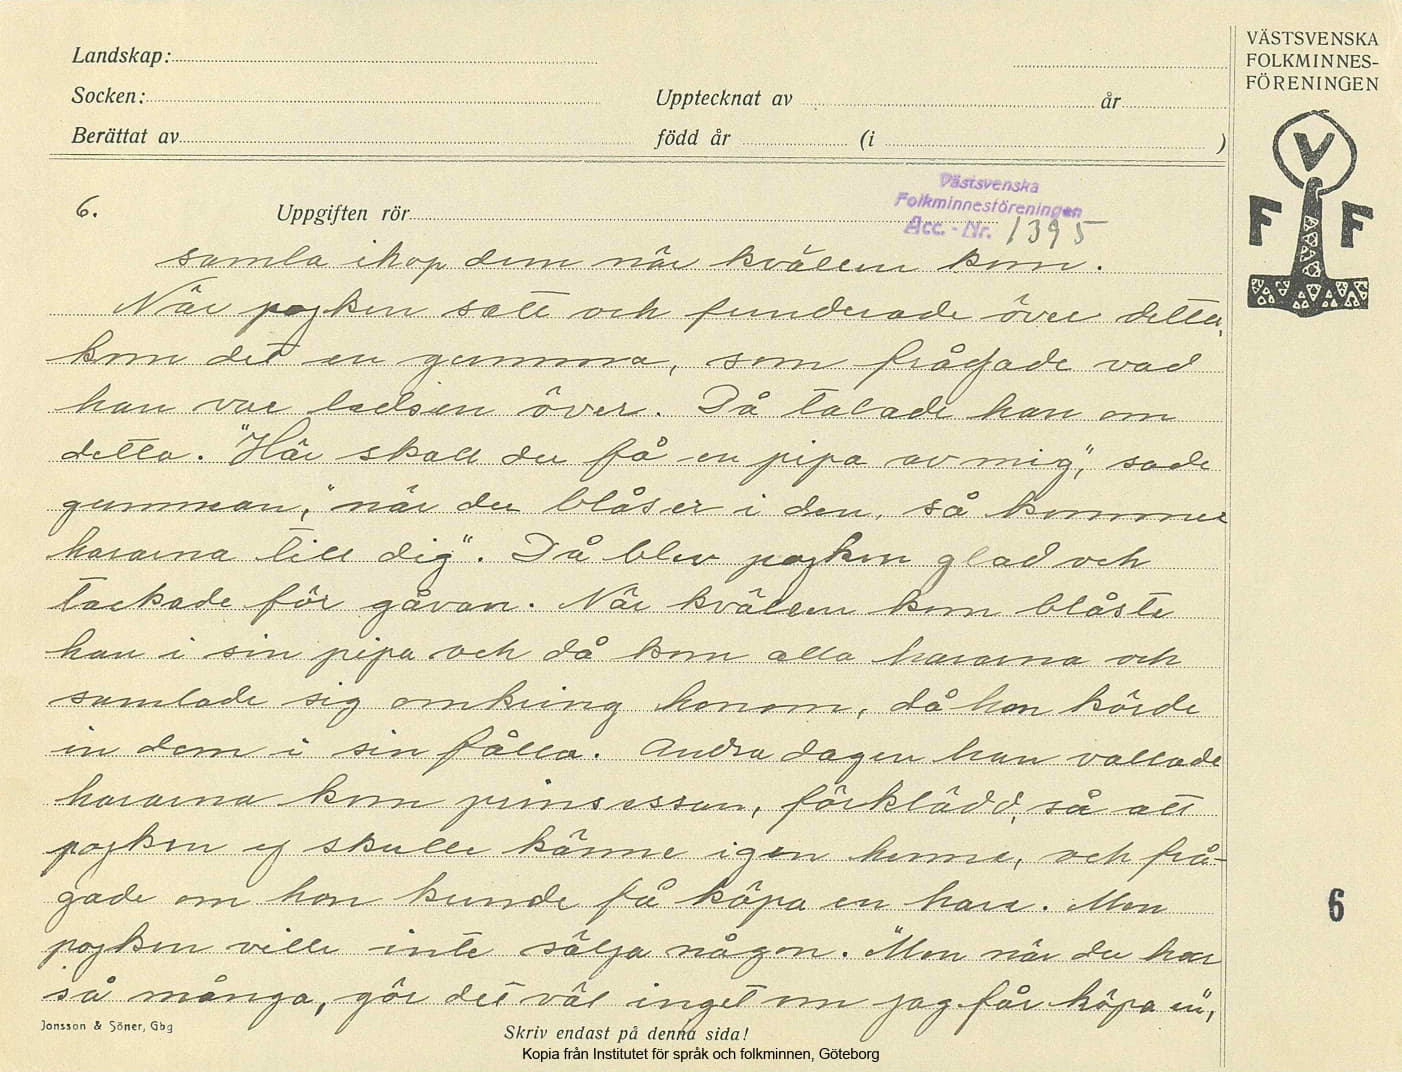 VÄSTSVENSKA
FOLKMINNES-
FÖRENINGEN
V
F F
Landskap:
Socken: Upptecknat av år
Berättat av född år (i )
Västsvenska
Folkminnesföreningen
Acc. - Nr. 1395
6. Uppgiften rör
samla ihop dem när kvällen kom.
När pojken satt och funderade över detta,
kom det en gumma, som frågade vad
han var ledsen över. Då talade han om
detta. "Här skall du få en pipa av mig", sade
gumman, "när du blåser i den, så kommer
hararna till dig". Då blev pojken glad och
tackade för gåvan. När kvällen kom blåste
han i sin pipa och då kom alla hararna och
samlade sig omkring honom, då han körde
in dem i sin fålla. Andra dagen han vallade
hararna kom prinsessan, förklädd, så att
pojken ej skulle känna igen henne, och frå-
gade om hon kunde få köpa en hare. Men
pojken ville inte sälja någon. "Men när du har
så många, gör det väl inget om jag får köpa en",
6
Jonsson & Söner, Gbg
Skriv endast på denna sida!
Kopia från Institutet för språk och folkminnen, Göteborg